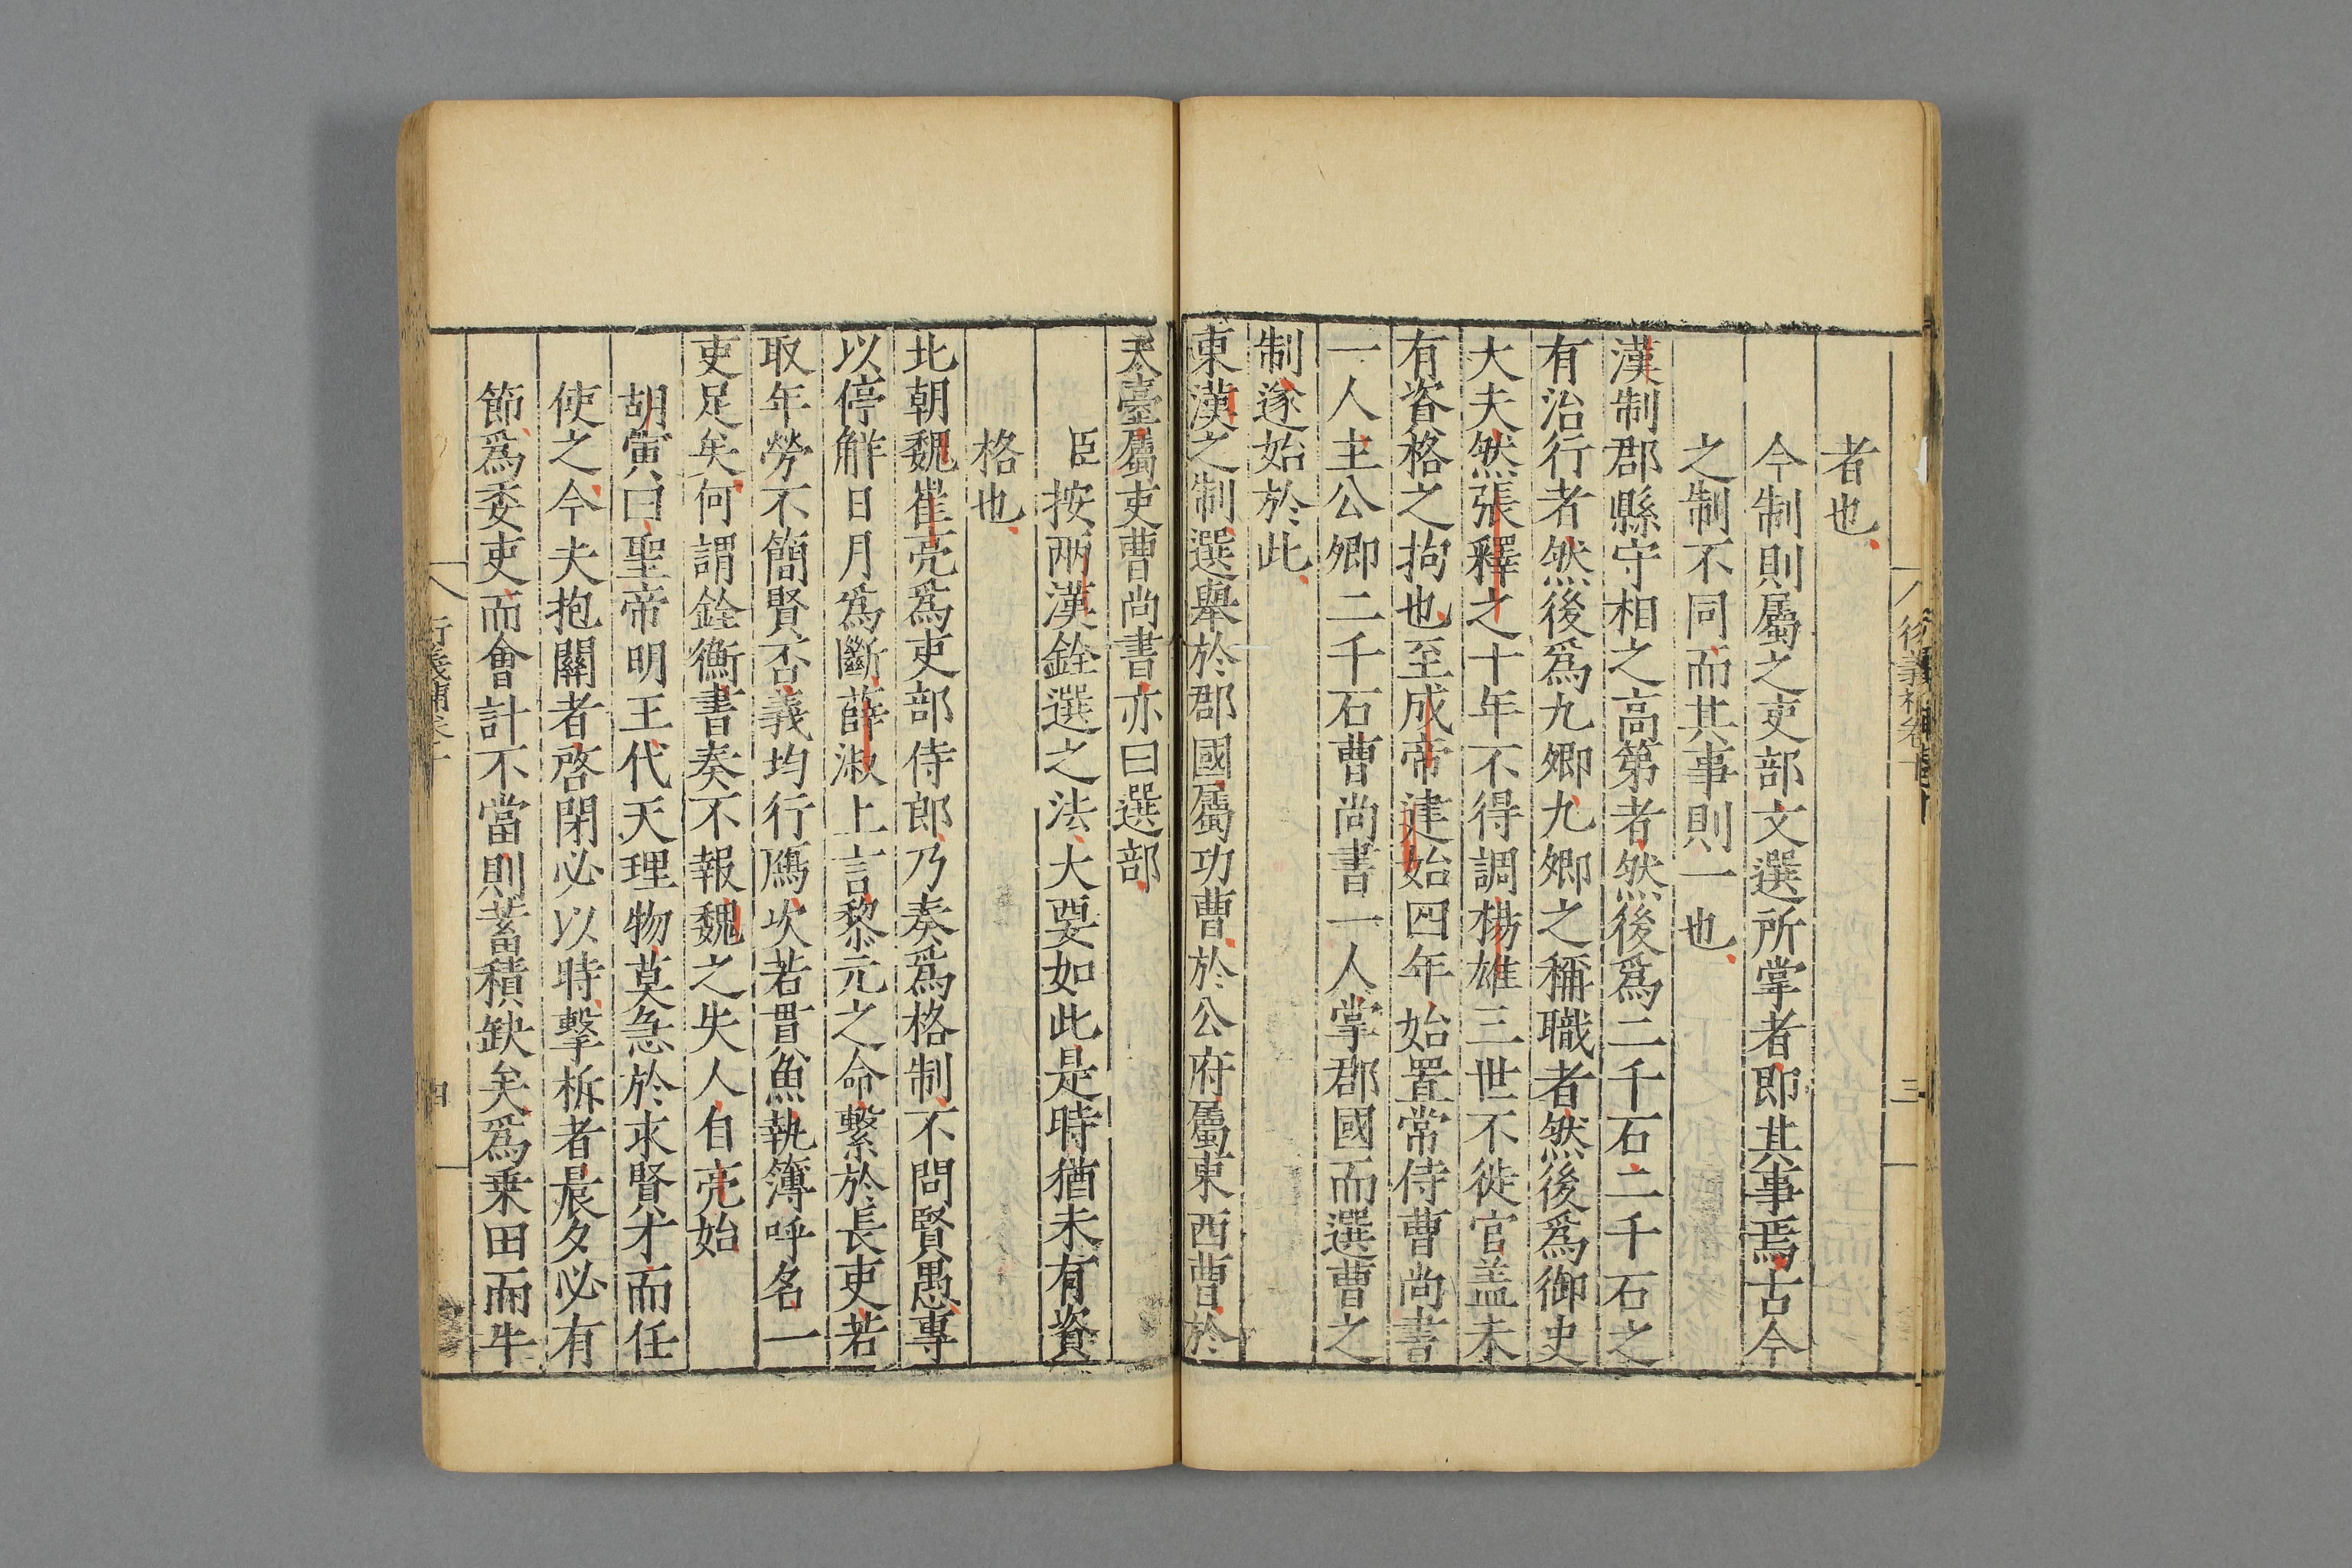 者也
今制則屬之吏部文選所掌者即其事焉古今
之制不同而其事則一也
漢制郡縣守相之高第者然後爲二千石二千石之
有治行者然後爲九卿九卿之稱職者然後爲御史
大夫然張釋之十年不得調楊雄三世不徙官盖未
有資格之拘也至成帝建始四年始置常侍曹尚書
一人主公卿二千石曹尚書一人掌郡國而選曹之
制遂始於此
東漢之制選舉於郡國屬功曹於公府屬東西曹於
天臺屬吏曹尚書亦曰選部
臣按兩漢銓選之法大要如此是時猶未有資
格也
北朝魏崔亮爲吏部侍郎乃奏爲格制不問賢愚專
以停解日月爲斷薛淑上言黎元之命繫於長吏若
取年勞不簡賢否義均行鴈次若貫魚執簿呼名一
吏足矣何謂銓衡書奏不報魏之失人自亮始
胡寅曰聖帝明王代天理物莫急於求賢才而任
使之今夫抱關者啓閉必以時擊柝者晨夕必有
節爲委吏而會計不當則蓄積缺矣爲乗田而牛